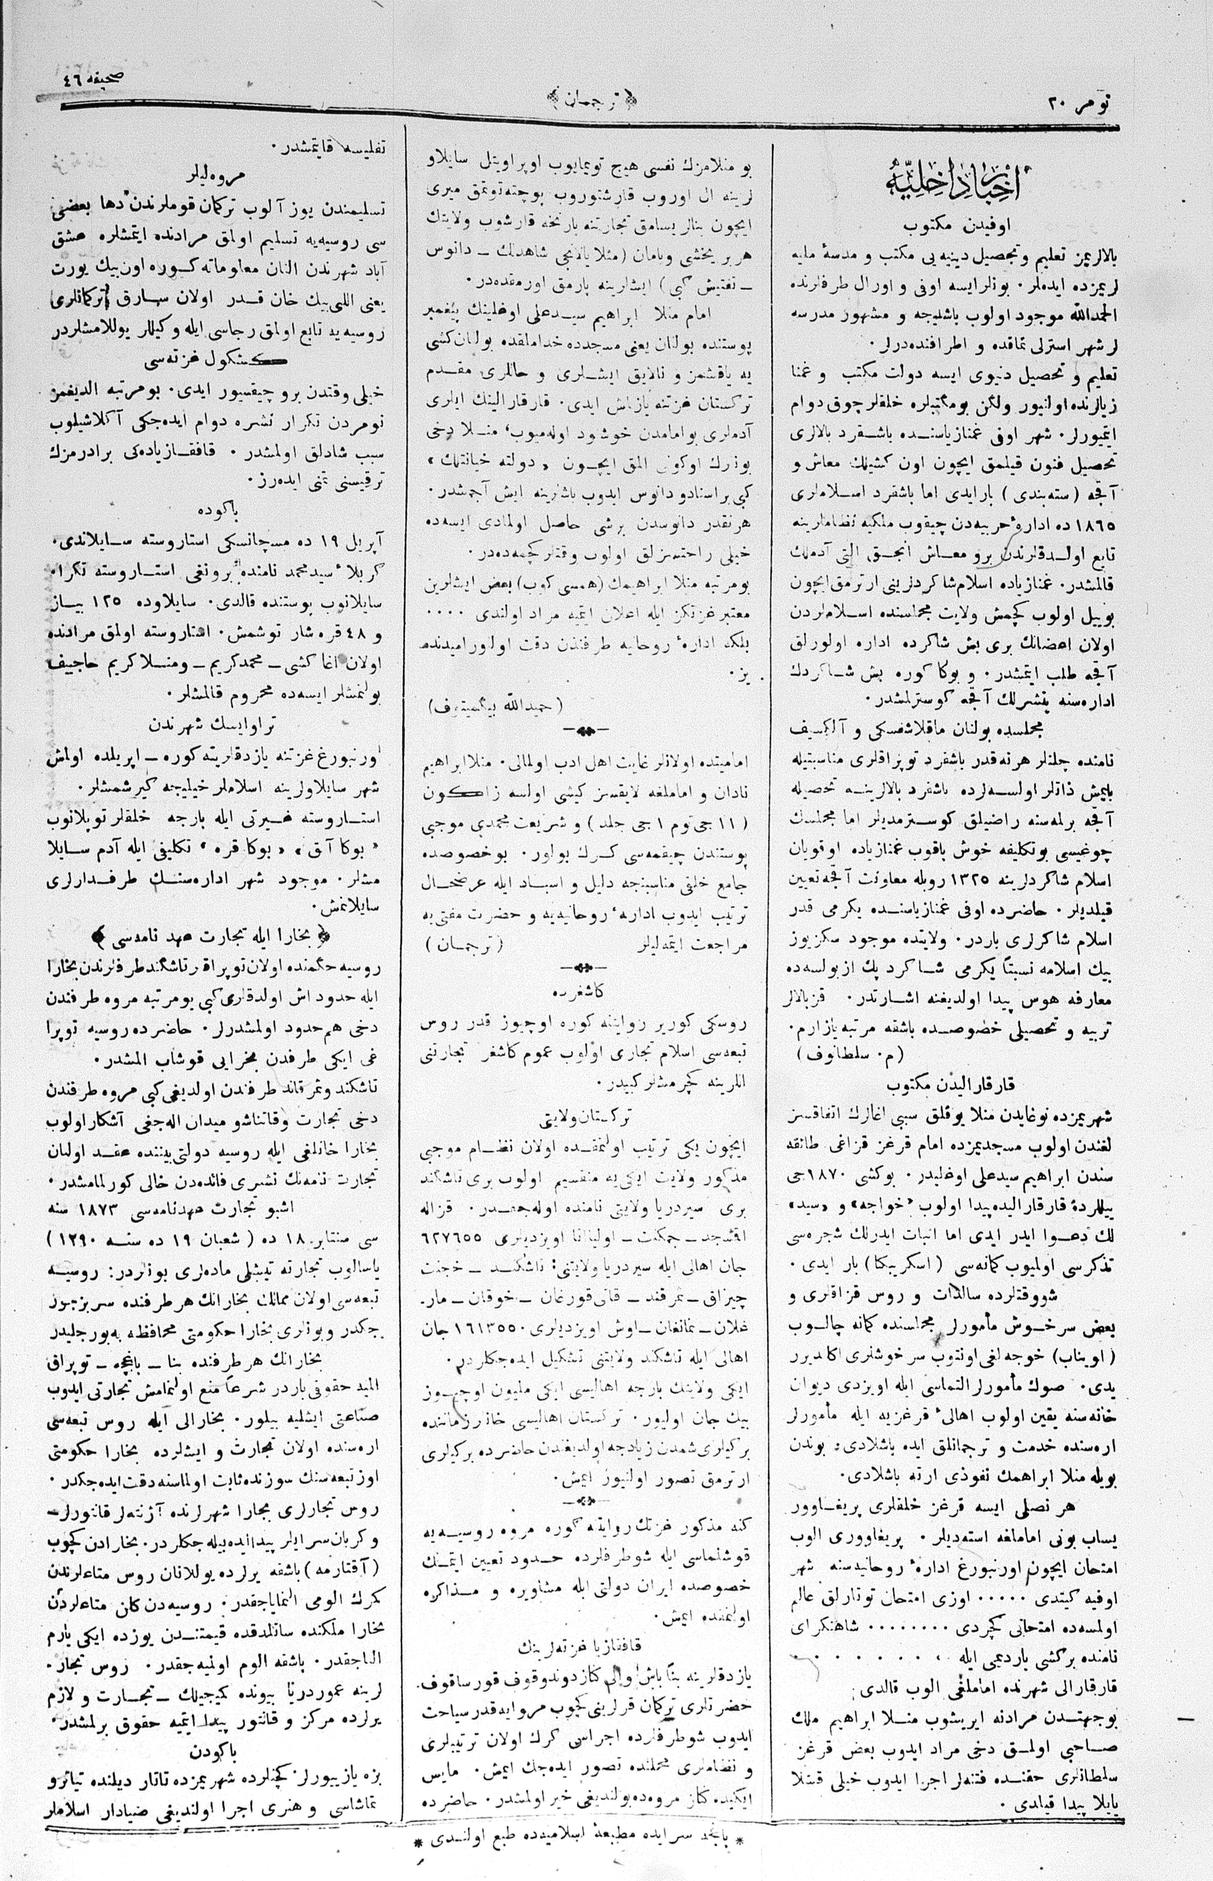 صحیفه ٤٦
﴿ ترجمان ﴾
نومر ٢٠
اخبار داخلیّه
اوفیدن مکتوب
بالالریمز تعلیم و تحصیل دینیه یی مکتب و مدسهٔ ملیه
لریمزده ایده‌لر. بونلر ایسه اوفی و اورال طرفلرنده
الحمدالله موجود اولوب باشلیجه و مشهور مدرسه
لر شهر استرلی تماقده و اطرافنده‌درلر.
تعلیم و تحصیل دنیوی ایسه دولت مکتب و غمنا
زیالرنده اولنیور ولکن بو مکتبلره خلقلر چوق دوام
ایتمیورلر. شهر اوفی غمنازیاسنده باشقرد بالالری
تحصیل فنون قیلمق ایچون اون کشیلک معاش و
آقچه (سته‌بندی) بار ایدی اما باشقرد اسلاملری
١٨٦٥ ده ادارهٔ حربیه‌دن چیقوب ملکیه نظاملرینه
تابع اولدقلرندن برو معاش انجق التی آدملک
قالمشدر. غمنازیاده اسلام شاکردلرینی ارترمق ایچون
بو ییل اولوب کچمش ولایت مجلسنده اسلاملردن
اولان اعضانک بری بش شاکرده اداره اولورلق
آقچه طلب ایتمشدر. و بوکا کوره بش شاکردک
اداره‌سنه یتشرلک آقچه کوسترلمشدر.
مجلسده بولنان ماقلاشفسکی و آلکسیف
نامنده چلنلر هرنه‌قدر باشقرد توپراقلری مناسبتیله
بایمش ذاتلر اولسه‌لرده باشقرد بالالرینه تحصیله
آقچه برلمه‌سنه راضیلق کوسترمدیلر اما مجلسک
چوغیسی بو تکلیفه خوش باقوب غمنازیاده اوقویان
اسلام شاکردلرینه ١٣٢٥ روبله معاونت آقچه تعیین
قیلدیلر. حاضرده اوفی غمنازیاسنده یکرمی قدر
اسلام شاکرلری باردر. ولایتده موجود سکز یوز
بیک اسلامه نسبتاً یکرمی شاکرد پک از بولسه‌ده
معارفه هوس پیدا اولدیغنه اشارتدر. قز بالالر
تربیه و تحصیلی خصوصده باشقه مرتبه یازارم.
(م. سلطانوف)
قارقارالیدن مکتوب
شهریمزده نوغایدن منلا یوقلق سببی اغالرک اتفاقسز
لغندن اولوب مسجدیمزده امام قرغز قزاغی طائفه
سندن ابراهیم سیدعلی اوغلیدر. بو کشی ١٨٧٠ جی
ییللردهٔ قارقارالیده پیدا اولوب «خواجه» و «سید»
لک دعوا ایدر ایدی اما اثبات ایدرلک شجره‌سی
تذکرسی اولمیوب کمانه‌سی (اسکریپکا) بار ایدی.
شو وقتلرده سالدات و روس قزاقلری و
بعض سرخوش مأمورلر مجلسنده کمانه چالوب
یدی. صوک مأمورلر التماسی ایله اویزدی دیوان
خانه‌سنه یقین اولوب اهالیٔ قرغزیه ایله مأمورلر
اره‌سنده خدمت و ترجمانلق ایده باشلادی. بوندن
بویله منلا ابراهمک نفوذی ارته باشلادی.
هر نصلی ایسه قرغز خلقلری پریغاوور
یساب بونی اماملغه استه‌دیلر. پریغاووری الوب
امتحان ایچون اورنبورغ ادارهٔ روحانیه‌سنه شهر
اوفیه کیتدی ..... اوزی امتحان توتارلق عالم
اولمسه‌ده امتحانی کچردی ........ شاهنکرای
نامنده برکشی یاردیمی ایله ........
قارقارالی شهرنده اماملغی الوب قالدی.
بوجهتدن مرادنه ایریشوب منلا ابراهیم ملک
صاحبی اولمق دخی مراد ایدوب بعض قرغز
سلطانلری حقنده فتنه‌لر اجرا ایدوب خیلی قشلا
یایلا پیدا قیلدی.
بو منلامزک نفسی هیچ تویمایوب اوپراوینل سایلاو
لرینه ال اوروب قارشتوروب پوچته تونمق میری
ایچون بنالر یسامق تجارتنه بارنجه قارشوب ولایتک
هر بر یخشی و یامان (مثلا یالانجی شاهدلک - دانوس
- تفتیش کبی) ایشلرینه بارمق اورمقده‌در.
امام منلا ابراهیم سیدعلی اوغلینک پیغمبر
پوستنده بولنان یعنی مسجدده خداملقده بولنان کشی
یه یاقشمز و نالایق ایشلری و حاللری مقدم
ترکستان غزتنه یازلمش ایدی. قارقارالینک ایلری
آدملری بو امامدن خوشنود اوله‌میوب، منلا دخی
بونلرک اوکونی المق ایچون «دولته خیانتلک»
کبی بر اسنادو دانوس ایدوب باشلرینه ایش آچمشدر.
هرنقدر دانوسدن برشی حاصل اولمادی ایسه‌ده
خیلی راحتسزلق اولوب وقتلر کچمه‌ده‌در.
بو مرتبه منلا ابراهیمک (همسی کوب) بعض ایشلرین
معتبر غزتکز ایله اعلان ایتمیه مراد اولندی ....
بلکه ادارهٔ روحانیه طرفندن دقت اولنور امیدنده
یز.
(حمیدالله بیکمیتوف)
امامیتده اولانلر غایت اهل ادب اولمالی. منلا ابراهیم
نادان و اماملغه لایقسز کیشی اولسه زاکون
(١١ جی توم ١ جی جلد) و شریعت محمدی موجبی
پوستندن چیقمه‌سی کرک بولور. بو خصوصده
جامع خلقی مناسبنجه دلیل و اسباد ایله عرضحال
ترتیب ایدوب ادارهٔ روحانیه‌یه و حضرت مفتی‌یه
مراجعت ایتمه‌لیلر (ترجمان)
کاشغرده
روسکی کوریر روایتنه کوره اوچیوز قدر روس
تبعه‌سی اسلام تجاری اولوب عموم کاشغر تجارتنی
اللرینه کچرمشلر کبیدر.
ترکستان ولایتی
ایچون یکی ترتیب اولنمقده اولان نظام موجبی
مذکور ولایت ایکی‌یه منقسم اولوب بری تاشکند
بری سیردریا ولایتی نامنده اوله‌جقدر. قزاله
اقمسجد - چمکنت - اولیاآتا اویزدیلری ٦٢٧٦٥٥
جان اهالی ایله سیردریا ولایتنی; تاشکند - خجنت
چیزاق - ثمرقند - قاتی قورغان - خوقان - مار
غلان - نمانغان - اوش اویزدیلری ١٦١٣٥٥٠ جان
اهالی ایله تاشکند ولایتنی تشکیل ایده‌جکلردر.
ایکی ولایتک بارچه اهالیسی ایکی ملیون اوچیوز
بیک جان اولیور. ترکستان اهالیسی خانلر زماننده
برکیلری شمدن زیادجه اولدیغندن حاضرده برکیلری
ارترمق تصور اولنیور ایمش.
کنه مذکور غزتک روایته کوره مروه روسیه‌یه
قوشلماسی ایله شو طرفلرده حدود تعیین ایتمک
خصوصده ایران دولتی ایله مشاویره و مذاکره
اولنمقده ایمش.
قافقازیا غزته‌لرینک
یازدقلرینه بناً باش والی کناز دوندوقوف قورساقوف
حضرتلری ترکمان قرلرینی کچوب مرو ایه‌قدر سیاحت
ایدوب شو طرفلرده اجراسی کرک اولان ترتیبلری
و نظاملری محلنده تصور ایده‌جک ایمش. مایس
ایکیده کناز مروه‌ده بولندیغی خبر اولمشدر. حاضرده
تفلیسه قایتمشدر.
مروه‌لیلر
تسلیمندن یوز آلوب ترکمان قوملرندن دها بعضی
سی روسیه‌یه تسلیم اولمق مرادنده ایتمشلره عشق
آباد شهرندن النان معلوماته کوره اون بیک یورت
یعنی اللی بیک خان قدر اولان سارق ترکمانلری
روسیه‌یه تابع اولمق رجاسی ایله وکیللر یوللامشلردر
کشکول غزته‌سی
خیلی وقتدن برو چیقمیور ایدی. بو مرتبه الدیغمز
نومردن تکرار نشره دوام ایده‌جکی آکلاشیلوب
سبب شادلق اولمشدر. قافقازیاده‌کی برادرمزک
ترقیسنی تمنی ایده‌رز.
باکوده
آپریل ١٩ ده مسچانسکی استاروسته سایلاندی.
کربلا سید محمد نامنده برونغی استاروسته تکرار
سایلانوب پوستنده قالدی. سایلاوده ١٢٥ بیاز
و ٤٨ قره شار توشمش. استاروسته اولمق مرادنده
اولان اغا کشی - محمد کریم - و منلا کریم حاجییف
بولنمشلر ایسه‌ده محروم قالمشلر.
تراوایسک شهرندن
اورنبورغ غزتنه یازدقلرینه کوره - اپریلده اولمش
شهر سایلاولرینه اسلاملر خیلیجه کیرشمشلر.
استاروسته غیرتی ایله بارچه خلقلر توپلانوب
«بوکا آق» «بوکا قره» تکلیفی ایله آدم سایلا
مشلر. موجود شهر اداره‌سنک طرفدارلری
سایلانمش.
﴿ بخارا ایله تجارت عهد نامه‌سی ﴾
روسیه حکمنده اولان توپراقلر تاشکند طرفلرندن بخارا
ایله حدوداش اولدقلری کبی بو مرتبه مروه طرفندن
دخی هم حدود اولمشدرلر. حاضرده روسیه توپرا
غی ایکی طرفدن بخرایی قوشاب المشدر.
تاشکند و ثمرقاند طرفندن اولدیغی کبی مروه طرفندن
دخی تجارت و قاتناشو میدان اله‌جغی آشکار اولوب
بخارا خانلغی ایله روسیه دولتی بیننده عقد اولنان
تجارت نامه‌نک نشری فائده‌دن خالی کورلمامشدر.
اشبو تجارت عهدنامه‌سی ١٨٧٣ سنه
سی سنتابر ١٨ ده (شعبان ١٩ ده سنه ١٢٩٠)
یاسالوب تجارته تیشلی ماده‌لری بونلردر: روسیه
تبعه‌سی اولان ممالک بخارانک هر طرفنده سربز یورو
جکدر و بونلری بخارا حکومتی محافظه‌یه بورجلیدر
بخارانک هر طرفنده بنا - باغچه - توپراق
المیه حقوقی باردر شرعاً منع اولنمامش تجارتی ایدوب
صناعتی ایشلیه بیلور. بخارالی ایله روس تبعه‌سی
اره‌سنده اولان تجارت و ایشلرده بخارا حکومتی
اوز تبعه‌سنک سوزنده ثابت اولماسنه دقت ایده‌جکدر.
روس تجارلری بخارا شهرلرنده آژنته‌لر قانتورلر -
و کربان سرایلر پیدا ایده بیله‌جکلردر. بخارادن کچوب
(آقتارمه) باشقه یرلرده یوللانان روس متاعلرندن
کمرک الومی النمایاجقدر. روسیه‌دن کلن متاعلردن
بخارا ملکنده ساتلدقده قیمتندن یوزده ایکی یارم
الناجقدر. باشقه الوم اولمیه‌جقدر. روس تجار
لرینه عمودریا بیونده کمیجیلک - تجارت و لازم
یرلرده مرکز و قانتور پیدا ایتمیه حقوق برلمشدر.
باکودن
بزه یازییورلر. کچنلرده شهریمزده تاتار دیلنده تیاترو
تماشاسی و هنری اجرا اولندیغی ضیادار اسلاملر
* باغچه سرایده مطبعهٔ اسلامیه‌ده طبع اولندی *